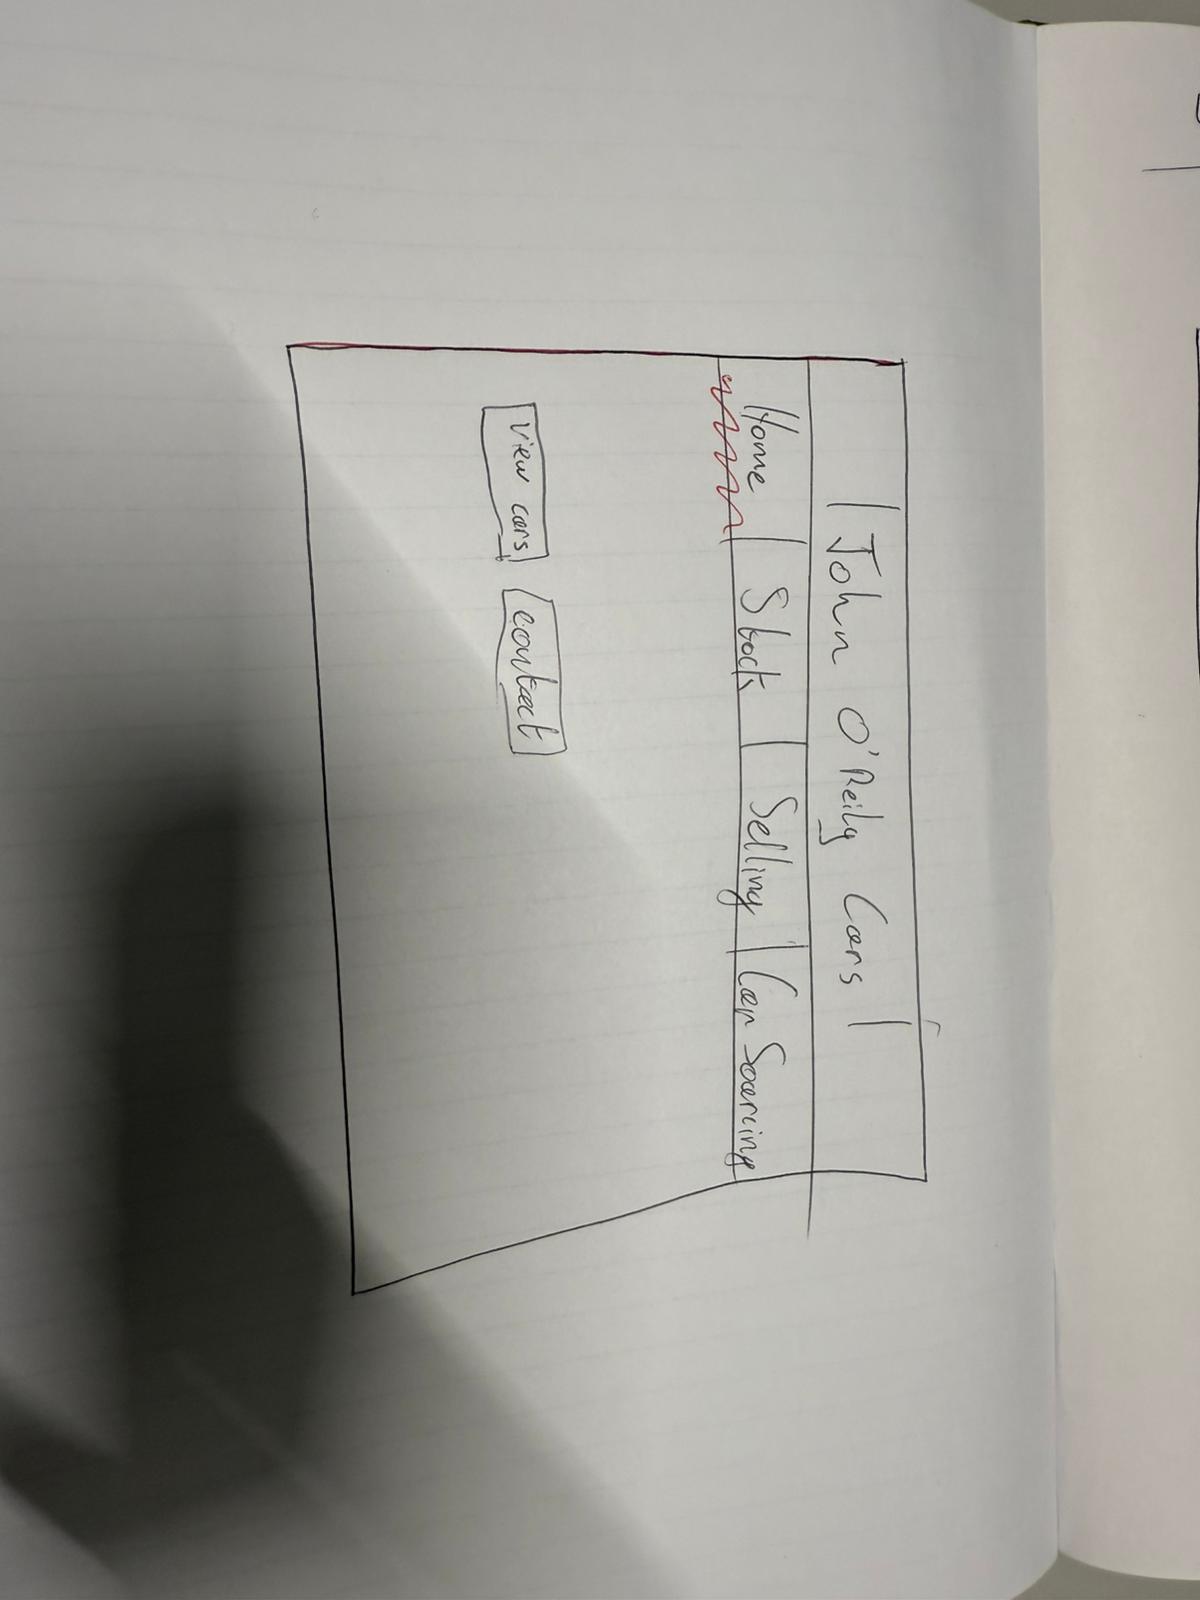 John O'Reily Cars
Home Stock Selling Car Sourcing
View cars contact